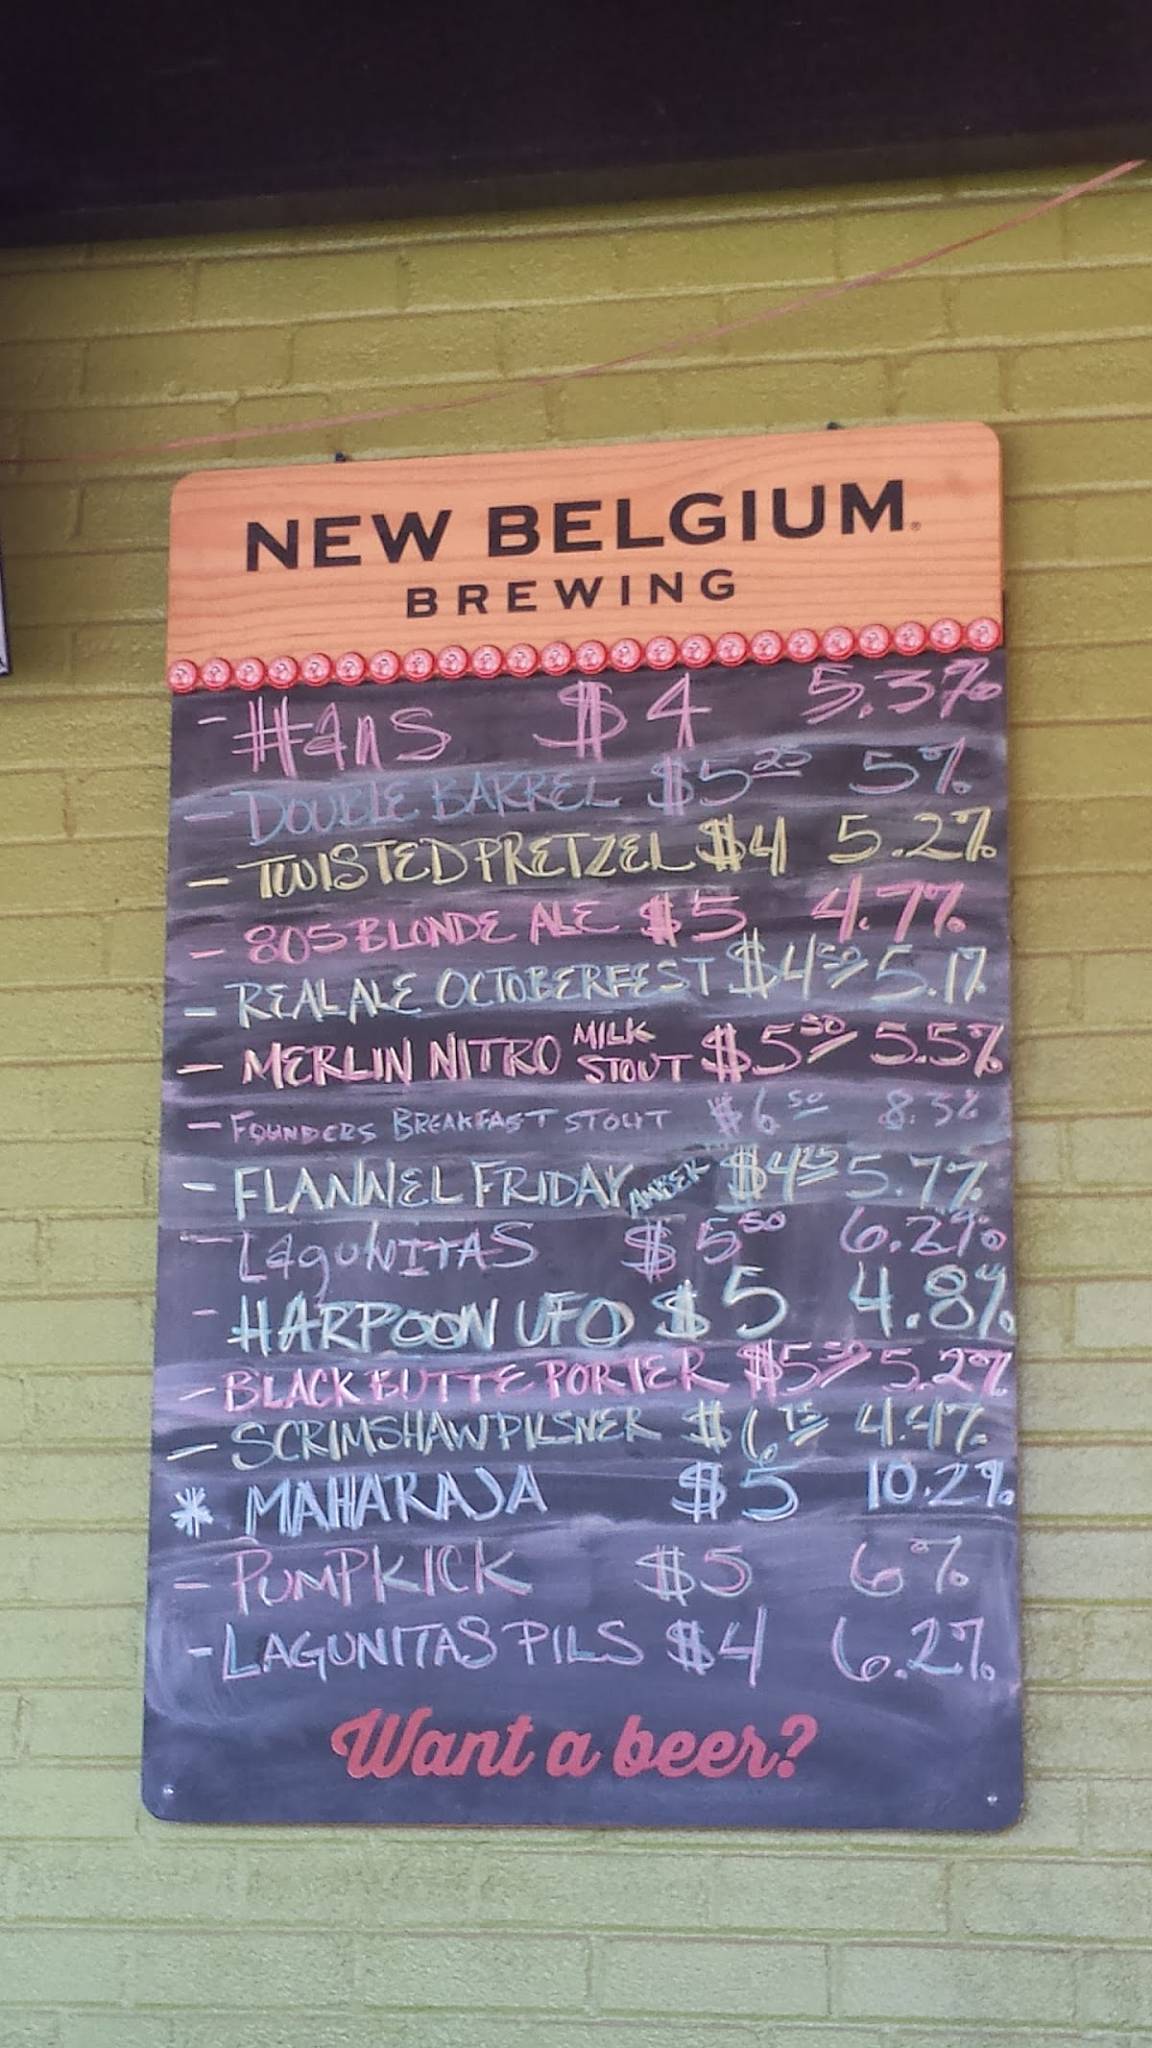 NEW BELGIUM
BREWING
- HanS $4 5.3%
- DOUBLE BARREL $5 25 5%
- TWISTED PRETZEL $4 5.2%
- 805 BLONDE ALE $5 4.7%
- REAL ALE OCTOBERFEST $4 50 5.1%
- MERLIN NITRO MILK STOUT $5 50 5.5%
- FOUNDERS BREAKFAST STOUT $6 50 8.3%
- FLANNEL FRIDAY AMBER $4 25 5.7%
- LagUNITAS $5 50 6.2%
- HARPOON UFO $5 4.8%
- BLACK BUTTE PORTER $5 50 5.2%
- SCRIMSHAW PILSNER $6 75 4.4%
* MAHARAJA $5 10.2%
- PUMPKICK $5 6%
- LAGUNITAS PILS $4 6.2%
Want a beer?